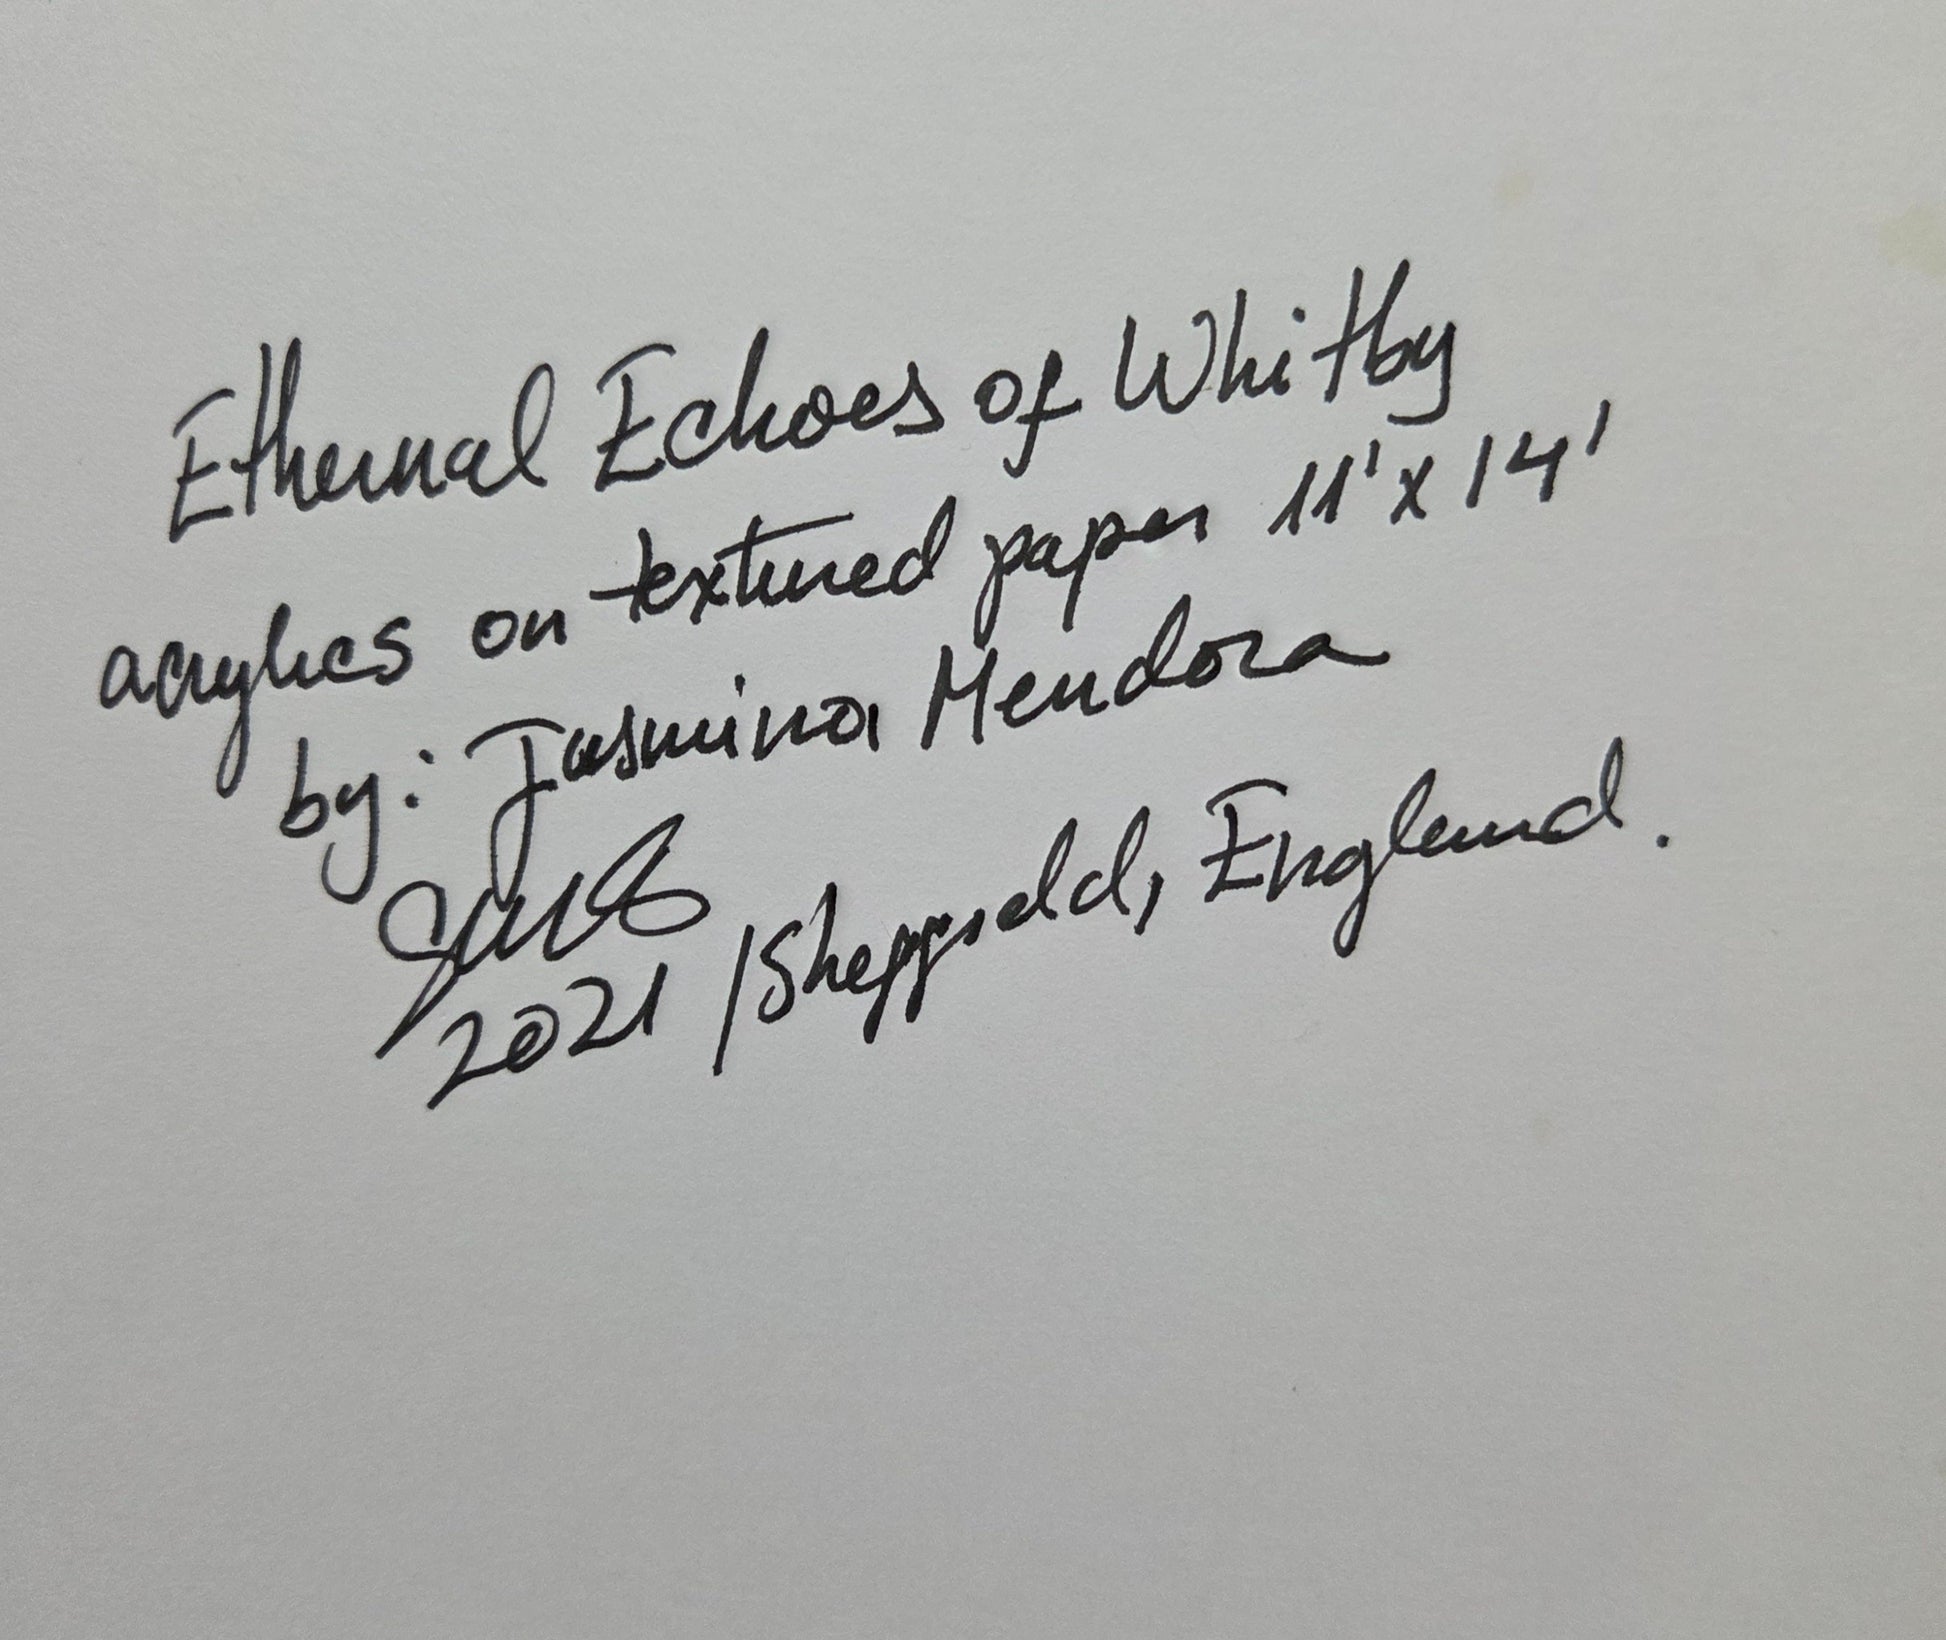 Ethernal Echoes of Whitby
acrylics on textured paper 11' x 14'
by: Jasmina Mendoza
2021 / England.